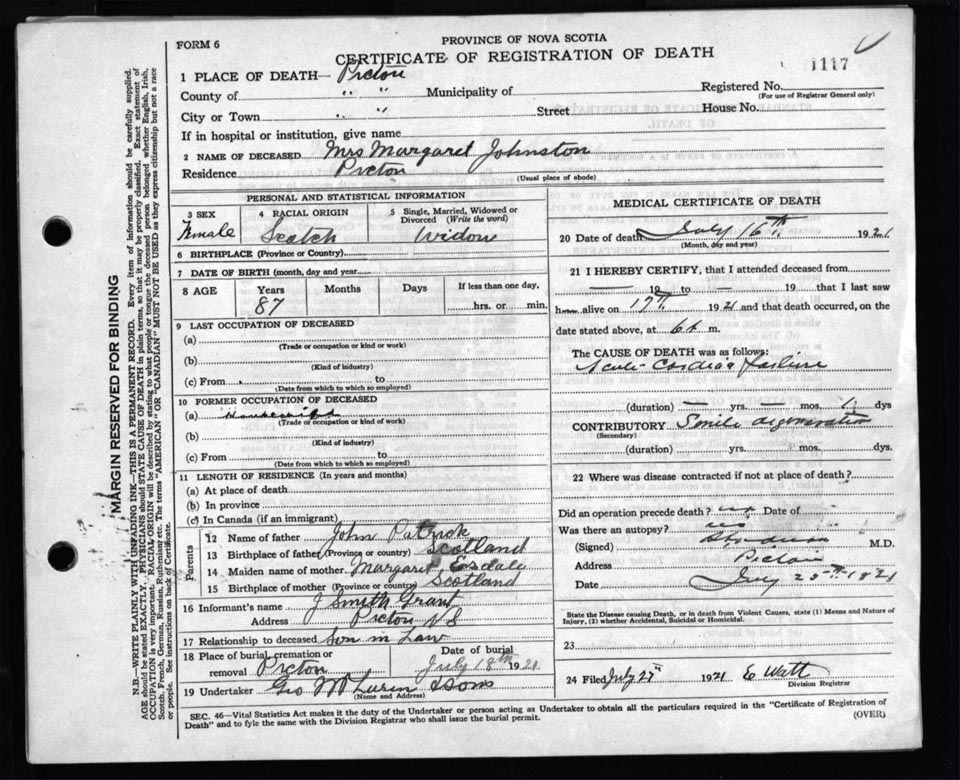 PROVINCE OF NOVA SCOTIA
FORM 6
CERTIFICATE OF REGISTRATION OF DEATH
1117
1 PLACE OF DEATH— Pictou
County of " " Municipality of Registered No.
(For use of Registrar General only)
City or Town " Street House No.
If in hospital or institution, give name
2 NAME OF DECEASED Mrs Margaret Johnston
Residence Pictou
(Usual place of abode)
PERSONAL AND STATISTICAL INFORMATION
3 SEX 4 RACIAL ORIGIN 5 Single, Married, Widowed or Divorced (Write the word)
Female Scotch Widow
6 BIRTHPLACE (Province or Country)
7 DATE OF BIRTH (month, day and year
8 AGE Years Months Days If less than one day,
87 hrs. or min.
9 LAST OCCUPATION OF DECEASED
(a)
(Trade or occupation or kind or work)
(b)
(Kind of industry)
(c) From to
(Date from which to which so employed)
10 FORMER OCCUPATION OF DECEASED
(a) Housewife
(Trade or occupation or kind or work)
(b)
(Kind of industry)
(c) From to
(Date from which to which so employed)
11 LENGTH OF RESIDENCE (In years and months)
(a) At place of death
(b) In province
(c) In Canada (if an immigrant)
Parents
12 Name of father John Patrick
13 Birthplace of father (Province or country) Scotland
14 Maiden name of mother Margaret Esdale
15 Birthplace of mother (Province or country) Scotland
16 Informant's name J Smith Grant
Address Pictou NS
17 Relationship to deceased Son in Law
18 Place of burial, cremation or removal Pictou
Date of burial July 18th 1921
19 Undertaker Geo McLaren & Sons
(Name and Address)
MEDICAL CERTIFICATE OF DEATH
20 Date of death July 16th 1921
(Month, day and year)
21 I HEREBY CERTIFY, that I attended deceased from
— 19 to — 19 that I last saw
h alive on 17th 1921 and that death occurred, on the
date stated above, at 6 m.
The CAUSE OF DEATH was as follows:
Acute Cardiac Failure
(duration) — yrs. — mos. 1 dys
CONTRIBUTORY Senile degeneration
(Secondary)
(duration) yrs. mos. dys.
22 Where was disease contracted if not at place of death?
Did an operation precede death? no Date of
Was there an autopsy? no
(Signed) M.D.
Address Pictou
Date July 25th 1921
State the Disease causing Death, or in death from Violent Causes, state (1) Means and Nature of
Injury, (2) whether Accidental, Suicidal or Homicidal.
23
24 Filed July 27 1921 E Watt
Division Registrar
SEC. 46—Vital Statistics Act makes it the duty of the Undertaker or person acting as Undertaker to obtain all the particulars required in the "Certificate of Registration of
Death" and to fyle the same with the Division Registrar who shall issue the burial permit.
(OVER)
MARGIN RESERVED FOR BINDING
N.B.—WRITE PLAINLY WITH UNFADING INK—THIS IS A PERMANENT RECORD. Every item of information should be carefully supplied.
AGE should be stated EXACTLY. PHYSICIANS should STATE CAUSE OF DEATH in plain terms, so that it may be properly classified. Exact statement of
OCCUPATION is very important. RACIAL ORIGIN will be described by stating to what people or tongue the deceased person belonged whether English, Irish,
Scotch, French, German, Russian, Ruthenian etc. The terms "AMERICAN" OR "CANADIAN" MUST NOT BE USED as they express citizenship but not a race
or people. See instructions on back of Certificate.